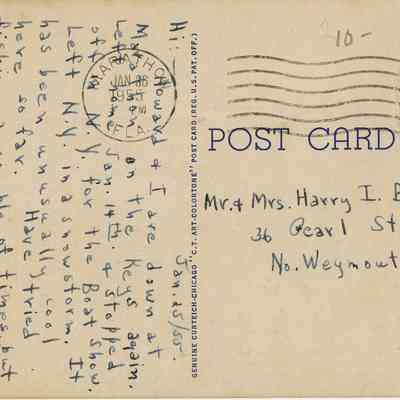 Jan. 25/55
Hi:-
Howard & I are down at
Marathon on the Keys again.
Left home Jan. 14th. & stopped
off in N.Y. for the Boat Show.
Left N.Y. in a snowstorm. It
has been unusually cool
here so far. Have tried
fishing of times but
MARATHON
JAN 26
1955
PM
FLA.
GENUINE CURTEICH-CHICAGO "C.T. ART-COLORTONE" POST CARD (REG. U.S. PAT. OFF.)
10-
POST CARD
Mr. & Mrs. Harry I. B
36 Pearl St
No. Weymout